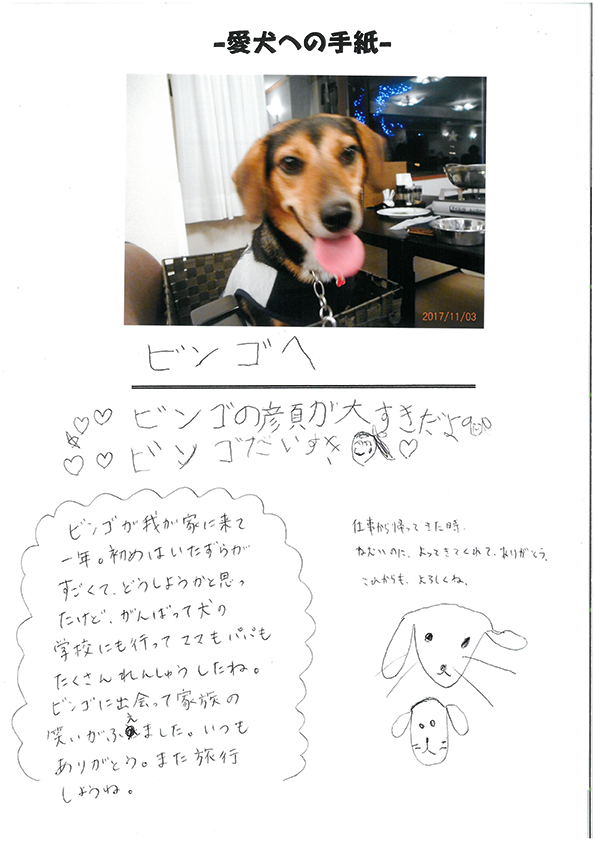 -愛犬への手紙-
2017/11/03
ビンゴへ
ビンゴの顔が大すきだよ
ビンゴだいすき
ビンゴが我が家に来て
一年。初めはいたずらが
すごくて、どうしようかと思っ
たけど、がんばって犬の
学校にも行ってママもパパも
たくさんれんしゅうしたね。
ビンゴに出会って家族の
笑いがふえました。いつも
ありがとう。また旅行
しようね。
仕事から帰ってきた時、
ねむいのに、よってきてくれて、ありがとう。
これからも、よろしくね。